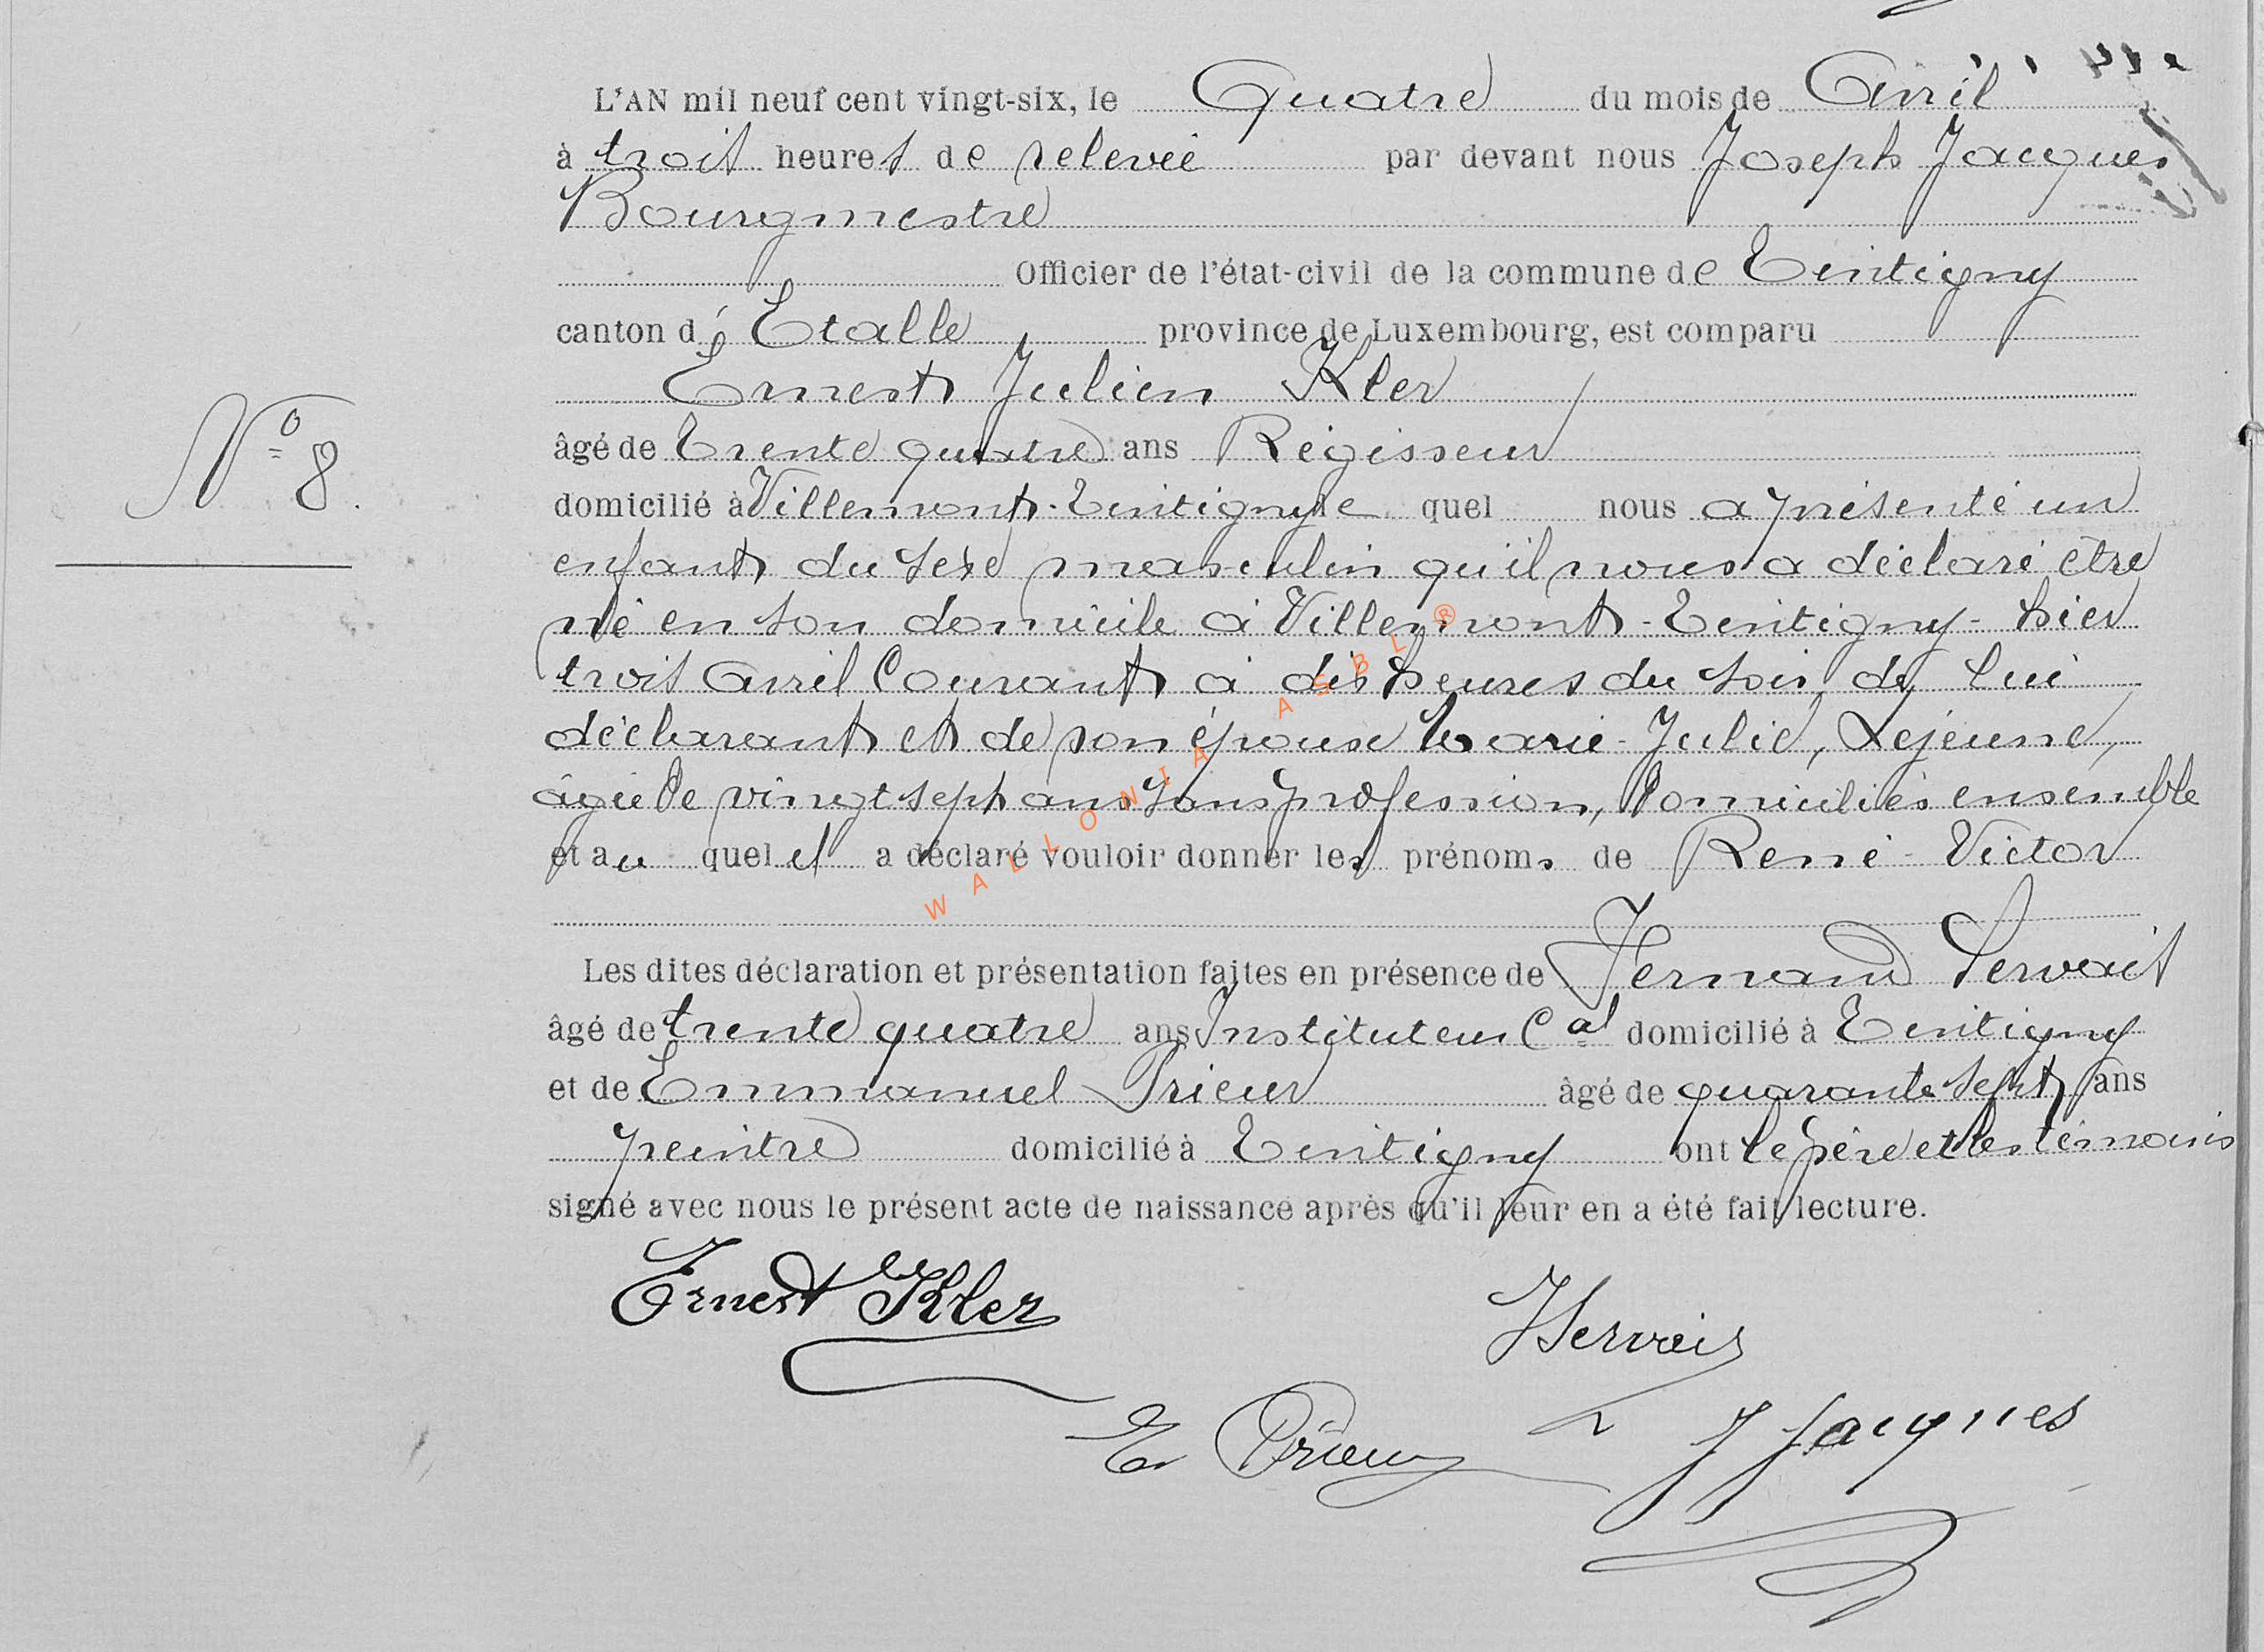 L'AN mil neuf cent vingt-six, le Quatre du mois de Avril
à trois heures de relevée par devant nous Joseph Jacques
Bourgmestre
Officier de l'état-civil de la commune de Tintigny
canton d'Etalle province de Luxembourg, est comparu
Ernest Julien Kler
N° 8.
âgé de Trente quatre ans Régisseur
domicilié à Villemont-Tintigny le quel nous a présenté un
enfant du sexe masculin qu'il nous a déclaré être
né en son domicile à Villemont-Tintigny- hier
trois avril Courant à dix heures du soir de lui
déclarant et de son épouse Marie-Julie, Lejeune,
âgée de vingt sept ans sans profession, Domiciliés ensemble
et au quel il a déclaré vouloir donner les prénoms de René-Victor
WALLONIA ASBL ®
Les dites déclaration et présentation faites en présence de Fernand Servais
âgé de trente quatre ans Instituteur Cal domicilié à Tintigny
et de Emmanuel Prieur âgé de quarante sept ans
peintre domicilié à Tintigny ont le père et les témoins
signé avec nous le présent acte de naissance après qu'il leur en a été fait lecture.
Ernest Kler
FServais
E Prieur
J Jacques